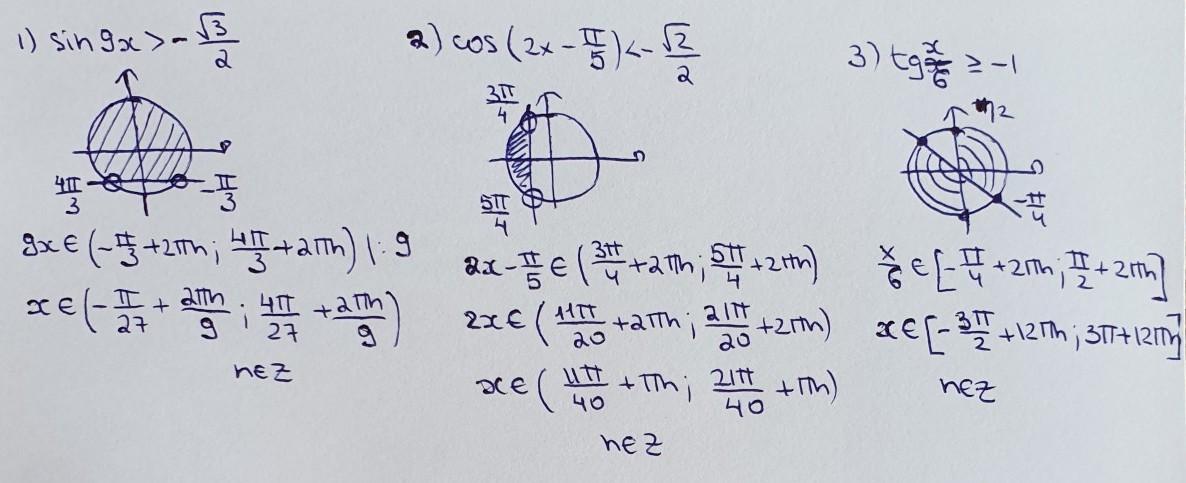 1) sin 9x > -√3/2
4π/3
-π/3
9x ∈ (-π/3 + 2πn; 4π/3 + 2πn) |: 9
x ∈ (-π/27 + 2πn/9; 4π/27 + 2πn/9)
n∈Z
2) cos(2x - π/5) < -√2/2
3π/4
5π/4
2x - π/5 ∈ (3π/4 + 2πn; 5π/4 + 2πn)
2x ∈ (11π/20 + 2πn; 21π/20 + 2πn)
x ∈ (11π/40 + πn; 21π/40 + πn)
n∈Z
3) tg x/6 ≥ -1
π/2
-π/4
x/6 ∈ [-π/4 + 2πn; π/2 + 2πn]
x ∈ [-3π/2 + 12πn; 3π + 12πn]
n∈Z